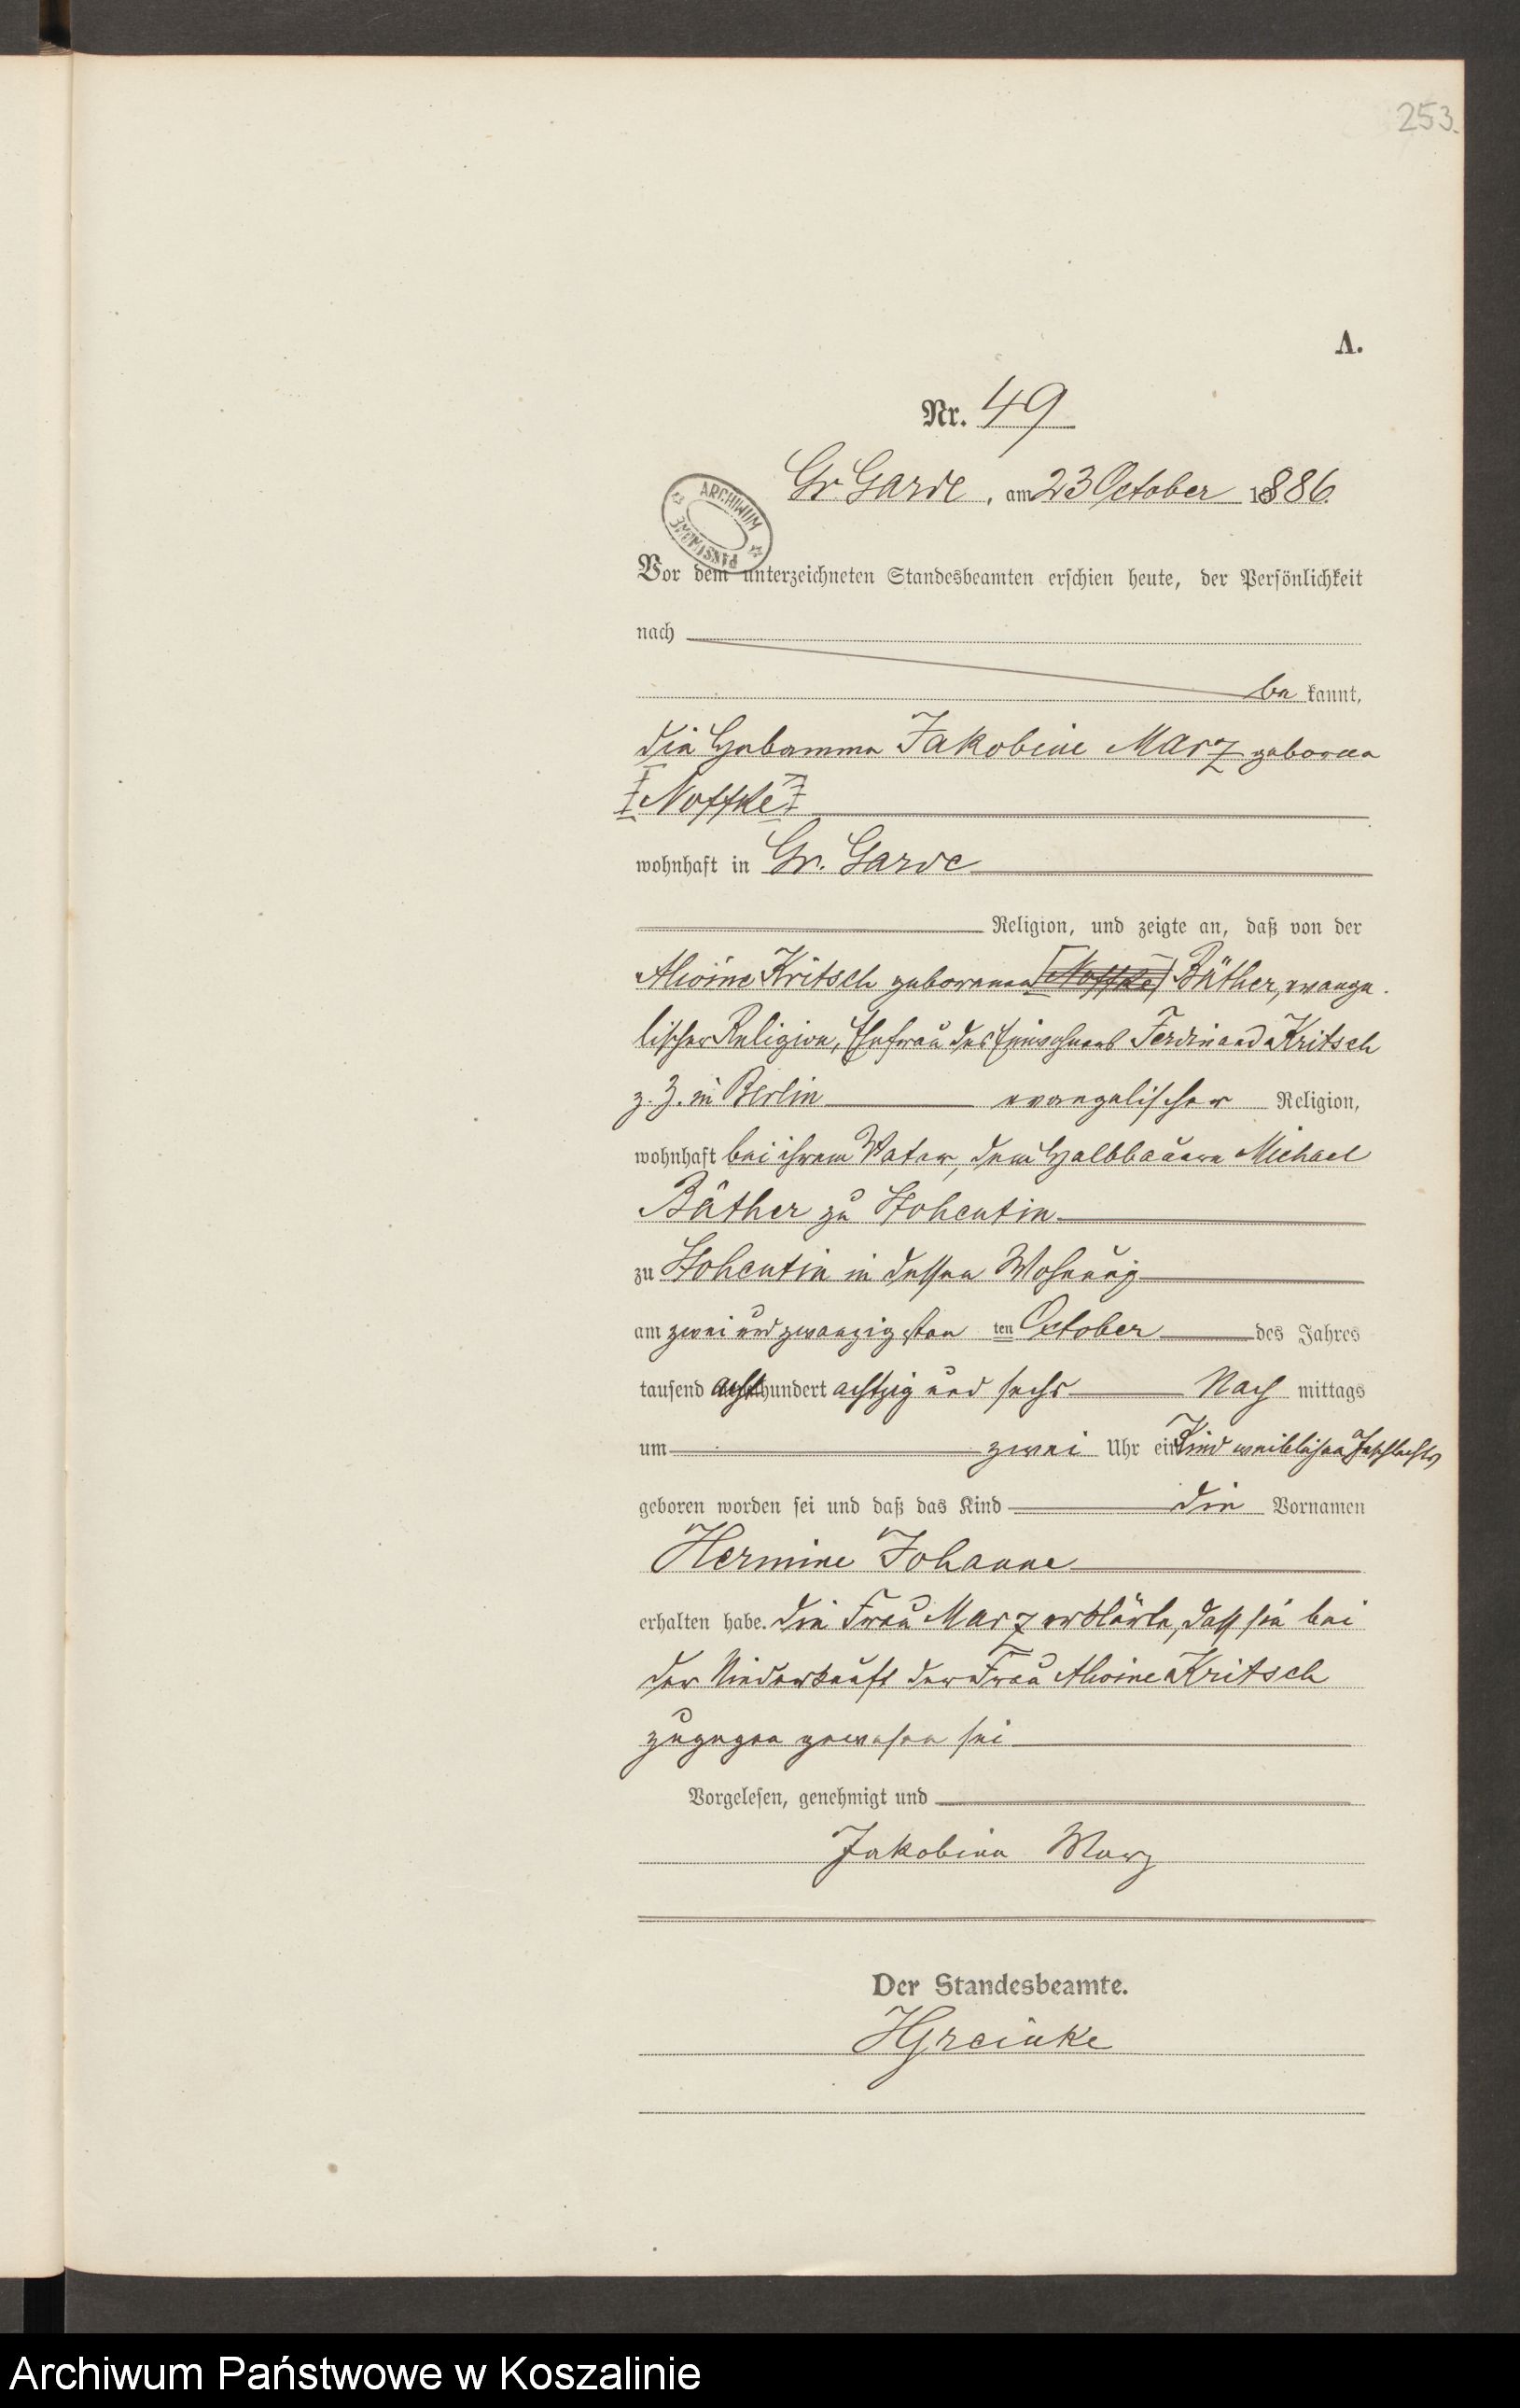 253.
A.
Nr. 49
Gr. Garde, am 23 October 1886.
ARCHIWUM PAŃSTWOWE
Vor dem unterzeichneten Standesbeamten erschien heute, der Persönlichkeit
nach
be kannt,
die Hebamme Jakobine Marz geborene
Noffke
wohnhaft in Gr. Garde
Religion, und zeigte an, daß von der
Alwine Kritsch geborenen Noffke Bäther, evange-
lischer Religion, Ehefrau des Einwohners Ferdinand Kritsch
z. Z. in Berlin evangelischer Religion,
wohnhaft bei ihrem Vater, dem Halbbauern Michael
Bäther zu Stohentin
zu Stohentin in dessen Wohnung
am zwei und zwanzigsten ten October des Jahres
tausend acht hundert achtzig und sechs Nach mittags
um zwei Uhr ein Kind weiblichen Geschlechts
geboren worden sei und daß das Kind die Vornamen
Hermine Johanne
erhalten habe. Die Frau Marz erklärte, daß sie bei
der Niederkunft der Frau Alwine Kritsch
zugegen gewesen sei
Vorgelesen, genehmigt und
Jakobine Marz
Der Standesbeamte.
Archiwum Państwowe w Koszalinie